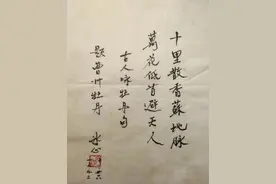 十里散香蘇地脉
萬花低首避天人
古人咏牡丹句
题曹州牡丹 冰心